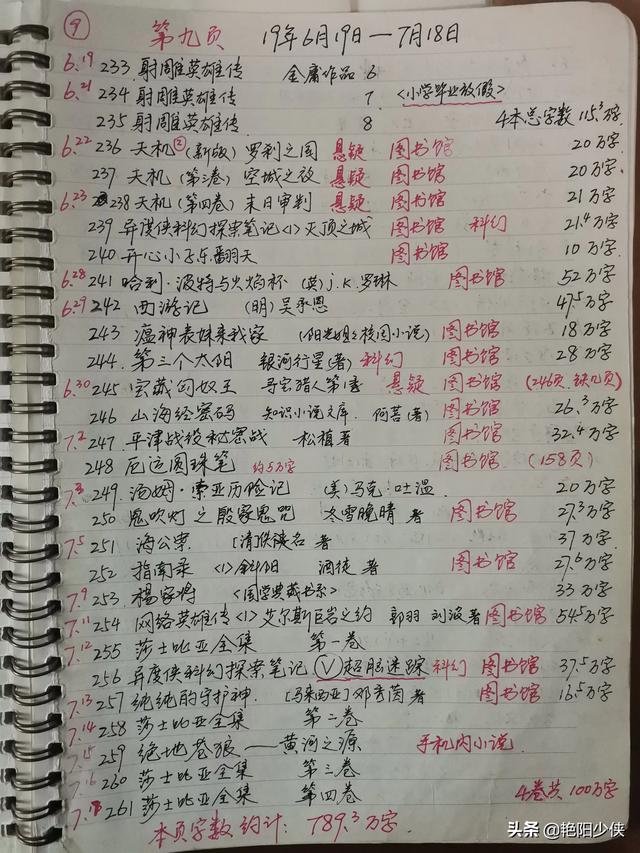 9 第九页 19年6月19日—7月18日
6.19 233 射雕英雄传 金庸作品 6
6.21 234 射雕英雄传 7 <小学毕业放假>
235 射雕英雄传 8 4本总字数 115.3万字
6.22 236 天机② (新版) 罗刹之国 悬疑 图书馆 20万字
237 天机 (第3卷) 空城之夜 悬疑 图书馆 20万字
6.23 238 天机 (第四卷) 末日审判 悬疑 图书馆 21万字
239 异度侠科幻探索笔记<1> 灭顶之城 图书馆 科幻 21.4万字
240 开心小子乐翻天 图书馆 10万字
6.28 241 哈利·波特与火焰杯 (英) J.K.罗琳 图书馆 52万字
6.29 242 西游记 (明) 吴承恩 47.5万字
243 瘟神表妹来我家 (阳光姐姐校园小说) 图书馆 18万字
244. 第三个太阳 银河行星(者) 科幻 图书馆 28万字
6.30 245 宝藏匈奴王 寻宝猎人第1季 悬疑 图书馆 (246页.缺几页)
246 山海经密码 知识小说文库. 阿菩(著) 图书馆 26.3万字
7.2 247. 平津战役秘密战 松植著 图书馆 32.4万字
248 厄运圆珠笔 约5万字 图书馆 (158页)
7.3 249. 汤姆·索亚历险记 (美)马克·吐温 20万字
250 鬼吹灯之殷家鬼咒 冬雪晚晴 著 图书馆 27.3万字
7.5 251 海公案. [清]佚名 著 37万字
252 指南录 <1>斜阳 酒徒 著 图书馆 27.6万字
7.9 253. 杨家将 <国学典藏书系> 33万字
7.11 254 网络英雄传<1> 艾尔斯巨岩之约 郭羽 刘波著 图书馆 54.5万字
7.12 255 莎士比亚全集 第一卷
256 异度侠科幻探案笔记 Ⅴ 超脑迷踪 科幻 图书馆 37.5万字
7.13 257 纯纯的守护神. [马来西亚]邓秀茵 著 图书馆 16.5万字
7.14 258 莎士比亚全集 第二卷
7.15 259 绝地苍狼——黄河之源 手机内小说.
7.16 260 莎士比亚全集 第三卷
7.18 261 莎士比亚全集 第四卷 4卷共100万字
本页字数约计: 789.3万字.
头条 @艳阳少侠